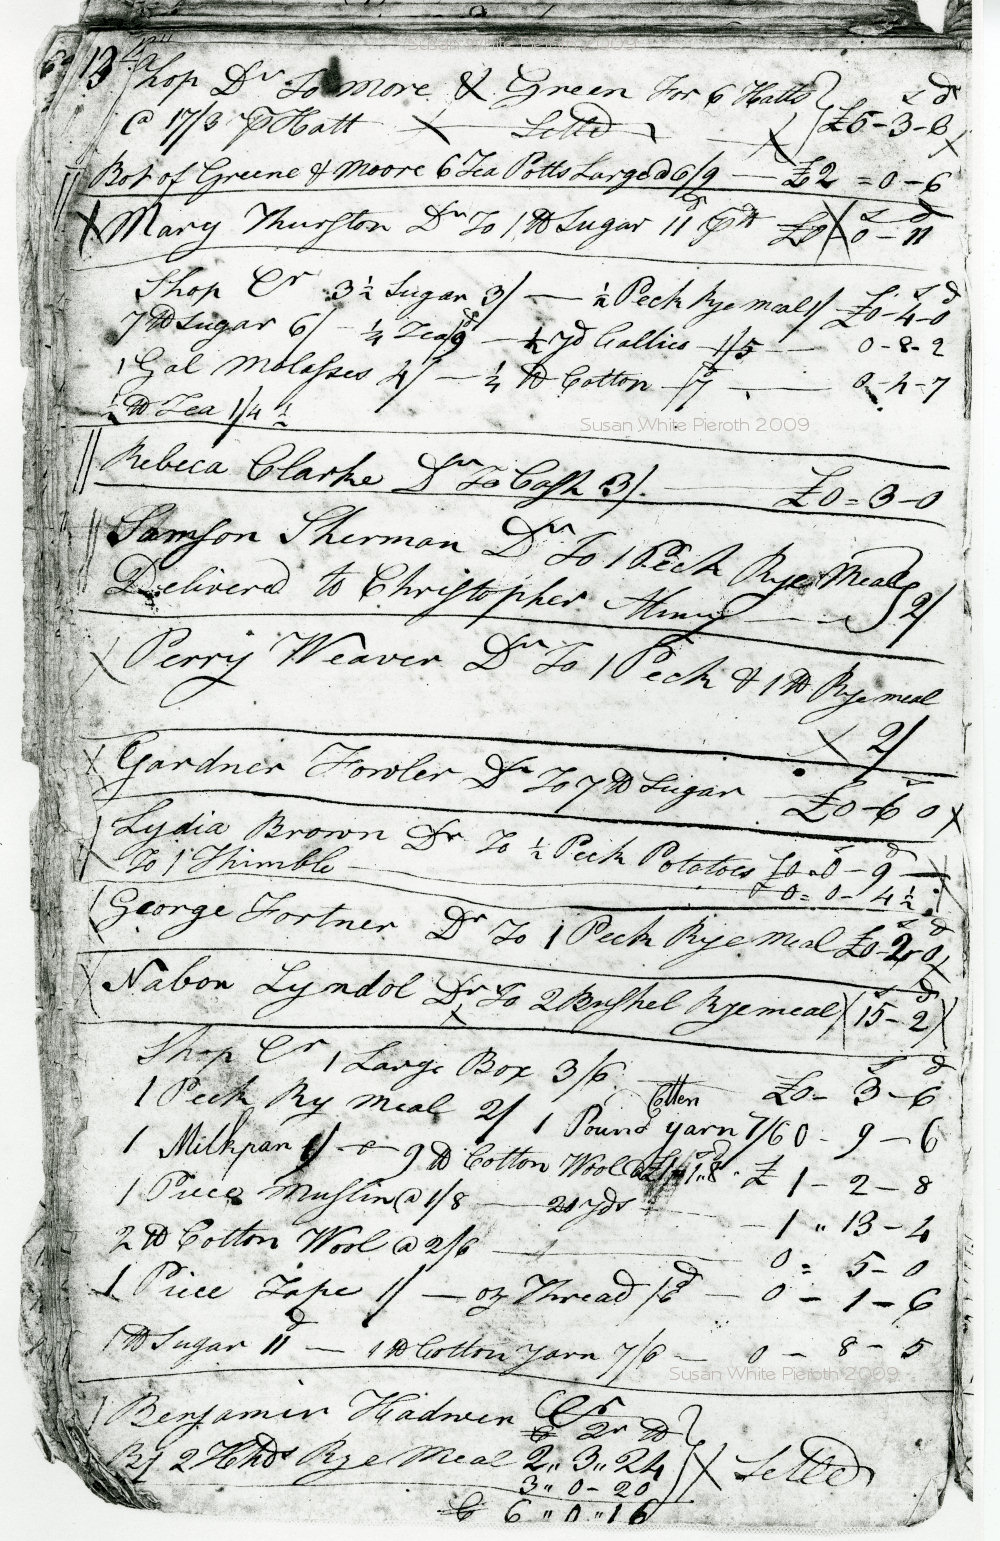 13
Shop Dr To More & Green For 6 Hatts
@ 17/3 ℔ Hatt Settd £5-3-6
Bot of Greene & Moore 6 Tea Potts Large @ 6/9 £2=0-6
Mary Thurston Dr To 1 ℔ Sugar 11d £0-0-11
Shop Cr 3½ Sugar 3/ — ½ Peck Rye meal 1/ £0-4-0
7 ℔ Sugar 6/ - ¼ Tea /9d — ½ yd Callico 1/5 — 0-8-2
1 Gal Molasses 4/ — ¼ ℔ Cotton /7d — 0-4-7
½ ℔ Tea 1/4½
Rebeca Clarke Dr To Cash 3/. £0=3-0
Samson Sherman Dr To 1 Peck Rye Meal
Delivered to Christopher Almy 2/
Perry Weaver Dr To 1 Peck & 1 ℔ Rye meal
2/
Gardner Fowler Dr To 7 ℔ Sugar £0-6-0
Lydia Brown Dr To ½ Peck Potatoes £0=0-9
To 1 Thimble £0=0-4½
George Fortner Dr To 1 Peck Rye Meal £0-2-0
Nabon Lyndol Dr To 2 Bushel Rye meal 15-2
Shop Cr 1 Large Box 3/6 £0-3-6
1 Peck Ry meal 2/ 1 Pound Cotten yarn 7/6 0-9-6
1 Milkpan — 9 ℔ Cotton Wool £1-2-8
1 Piece Muslin @ 1/8 — 20 yds 1"13-4
2 ℔ Cotton Wool @ 2/6 0=5-0
1 Piece Tape 1/ — oz Thread /6d — 0-1-6
1 ℔ Sugar 11d — 1 ℔ Cotton yarn 7/6 — 0-8-5
Benjamin Hadwen Cr
C qr ℔
By 2 Hhds Rye Meal 2"3"24 Settled
3"0-20
C 6"0"16
Susan White Pieroth 2009
Susan White Pieroth 2009